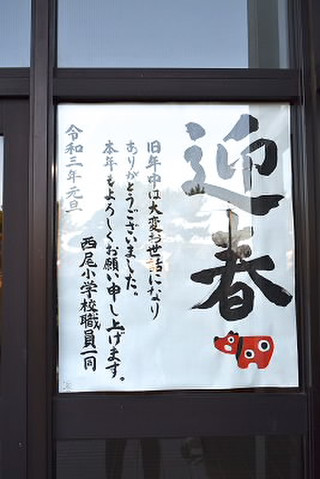 迎春
旧年中は大変お世話になり
ありがとうございました。
本年もよろしくお願い申し上げます。
西尾小学校職員一同
令和三年元旦